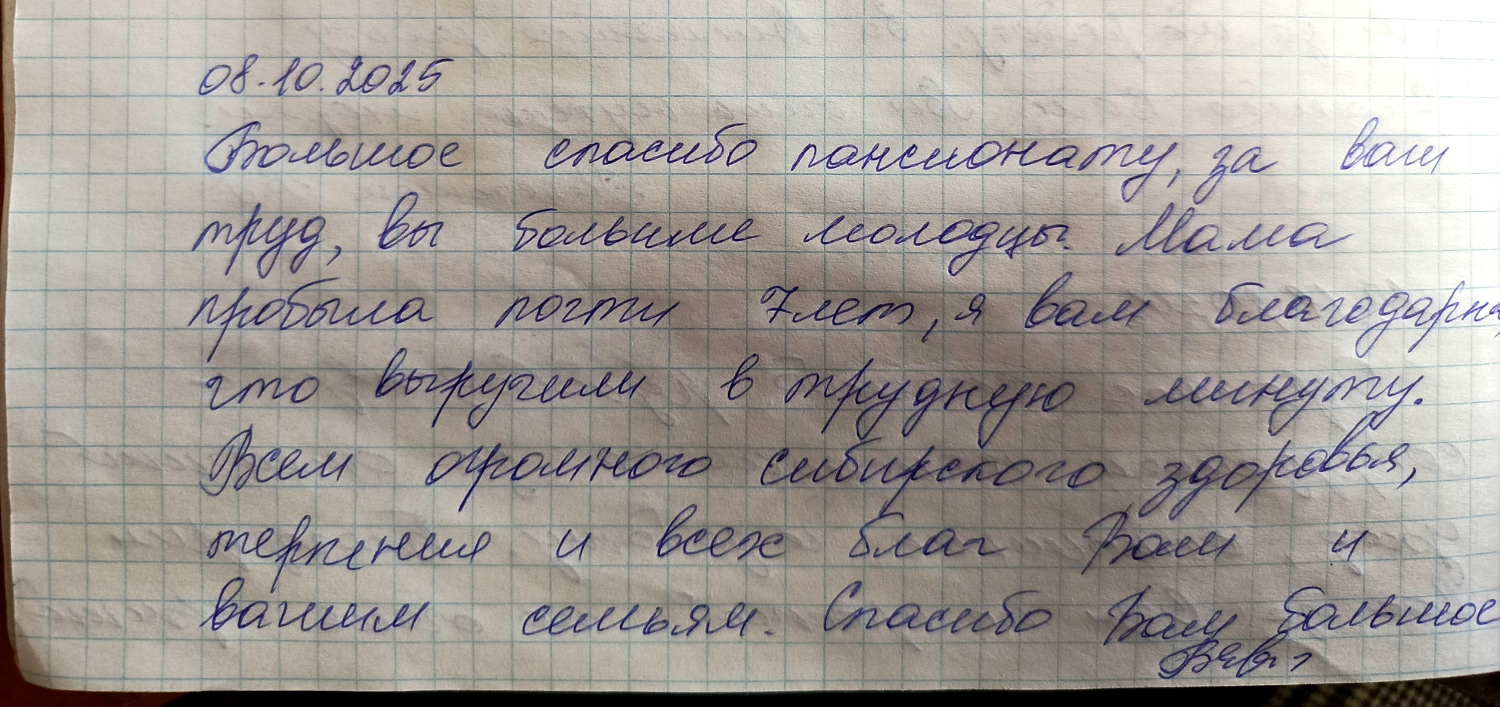 08.10.2025
Большое спасибо пансионату, за ваш
труд, вы большие молодцы. Мама
пробыла почти 7 лет, я вам благодарна,
что выручили в трудную минуту.
Всем огромного сибирского здоровья,
терпения и всех благ Вам и
вашим семьям. Спасибо Вам большое